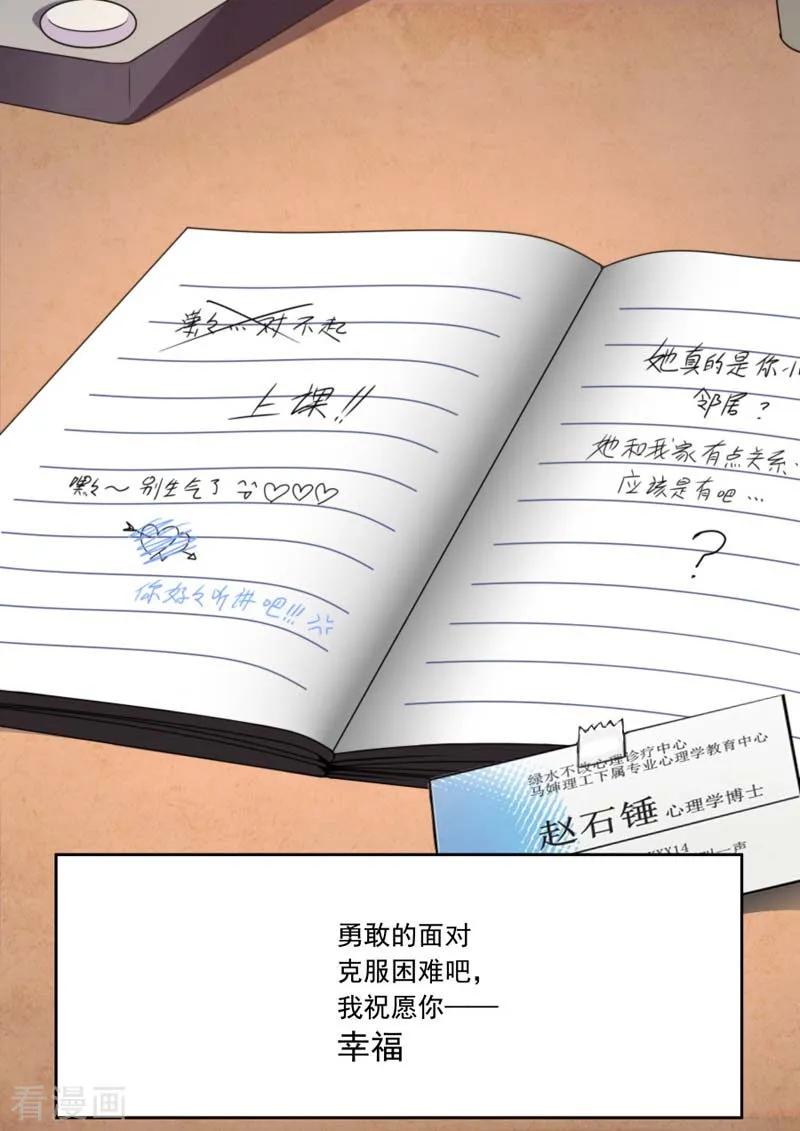 对不起
上课!!
嘿々~别生气了 ♡♡♡
你好々听讲吧!!!
她真的是你小
邻居?
她和我家有点关系.
应该是有吧...
?
绿水不改心理诊疗中心
马婶理工下属专业心理学教育中心
赵石锤 心理学博士
XXX14
一声
勇敢的面对
克服困难吧,
我祝愿你——
幸福
看漫画